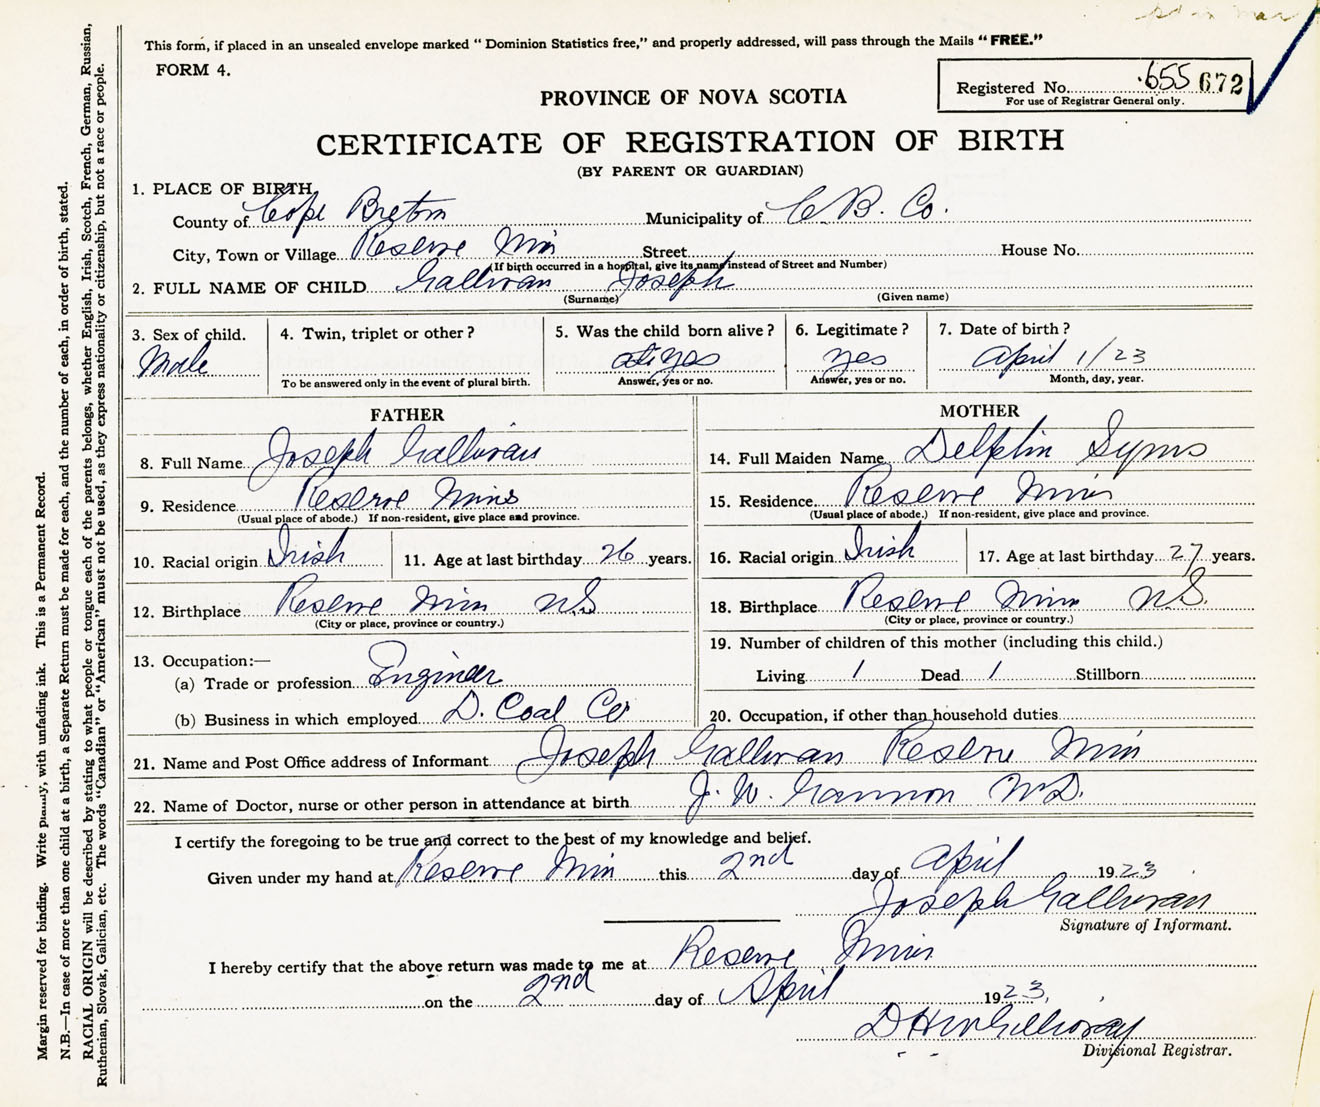 This form, if placed in an unsealed envelope marked " Dominion Statistics free," and properly addressed, will pass through the Mails " FREE."
FORM 4.
Registered No. 655 672
For use of Registrar General only.
PROVINCE OF NOVA SCOTIA
CERTIFICATE OF REGISTRATION OF BIRTH
(BY PARENT OR GUARDIAN)
1. PLACE OF BIRTH
County of Cape Breton Municipality of C B. Co.
City, Town or Village Reserve Min Street House No.
(If birth occurred in a hospital, give its name instead of Street and Number)
2. FULL NAME OF CHILD Gallivan Joseph
(Surname) (Given name)
3. Sex of child. 4. Twin, triplet or other ? 5. Was the child born alive ? 6. Legitimate ? 7. Date of birth ?
Male yes yes April 1/23
To be answered only in the event of plural birth. Answer, yes or no. Answer, yes or no. Month, day, year.
FATHER
8. Full Name Joseph Gallivan
9. Residence Reserve Mines
(Usual place of abode.) If non-resident, give place and province.
10. Racial origin Irish 11. Age at last birthday 26 years.
12. Birthplace Reserve Min N.S
(City or place, province or country.)
13. Occupation:—
(a) Trade or profession Engineer
(b) Business in which employed D. Coal Co
MOTHER
14. Full Maiden Name Delphin Syms
15. Residence Reserve Min
(Usual place of abode.) If non-resident, give place and province.
16. Racial origin Irish 17. Age at last birthday 27 years.
18. Birthplace Reserve Min N.S.
(City or place, province or country.)
19. Number of children of this mother (including this child.)
Living 1 Dead 1 Stillborn
20. Occupation, if other than household duties
21. Name and Post Office address of Informant Joseph Gallivan Reserve Min
22. Name of Doctor, nurse or other person in attendance at birth J. W. Gannon M.D.
I certify the foregoing to be true and correct to the best of my knowledge and belief.
Given under my hand at Reserve Min this 2nd day of April 1923
Joseph Gallivan
Signature of Informant.
I hereby certify that the above return was made to me at Reserve Mines
on the 2nd day of April 1923.
Divisional Registrar.
Margin reserved for binding. Write plainly, with unfading ink. This is a Permanent Record.
N.B.—In case of more than one child at a birth, a Separate Return must be made for each, and the number of each, in order of birth, stated.
RACIAL ORIGIN will be described by stating to what people or tongue each of the parents belongs, whether English, Irish, Scotch, French, German, Russian,
Ruthenian, Slovak, Galician, etc. The words "Canadian" or "American" must not be used, as they express nationality or citizenship, but not a race or people.